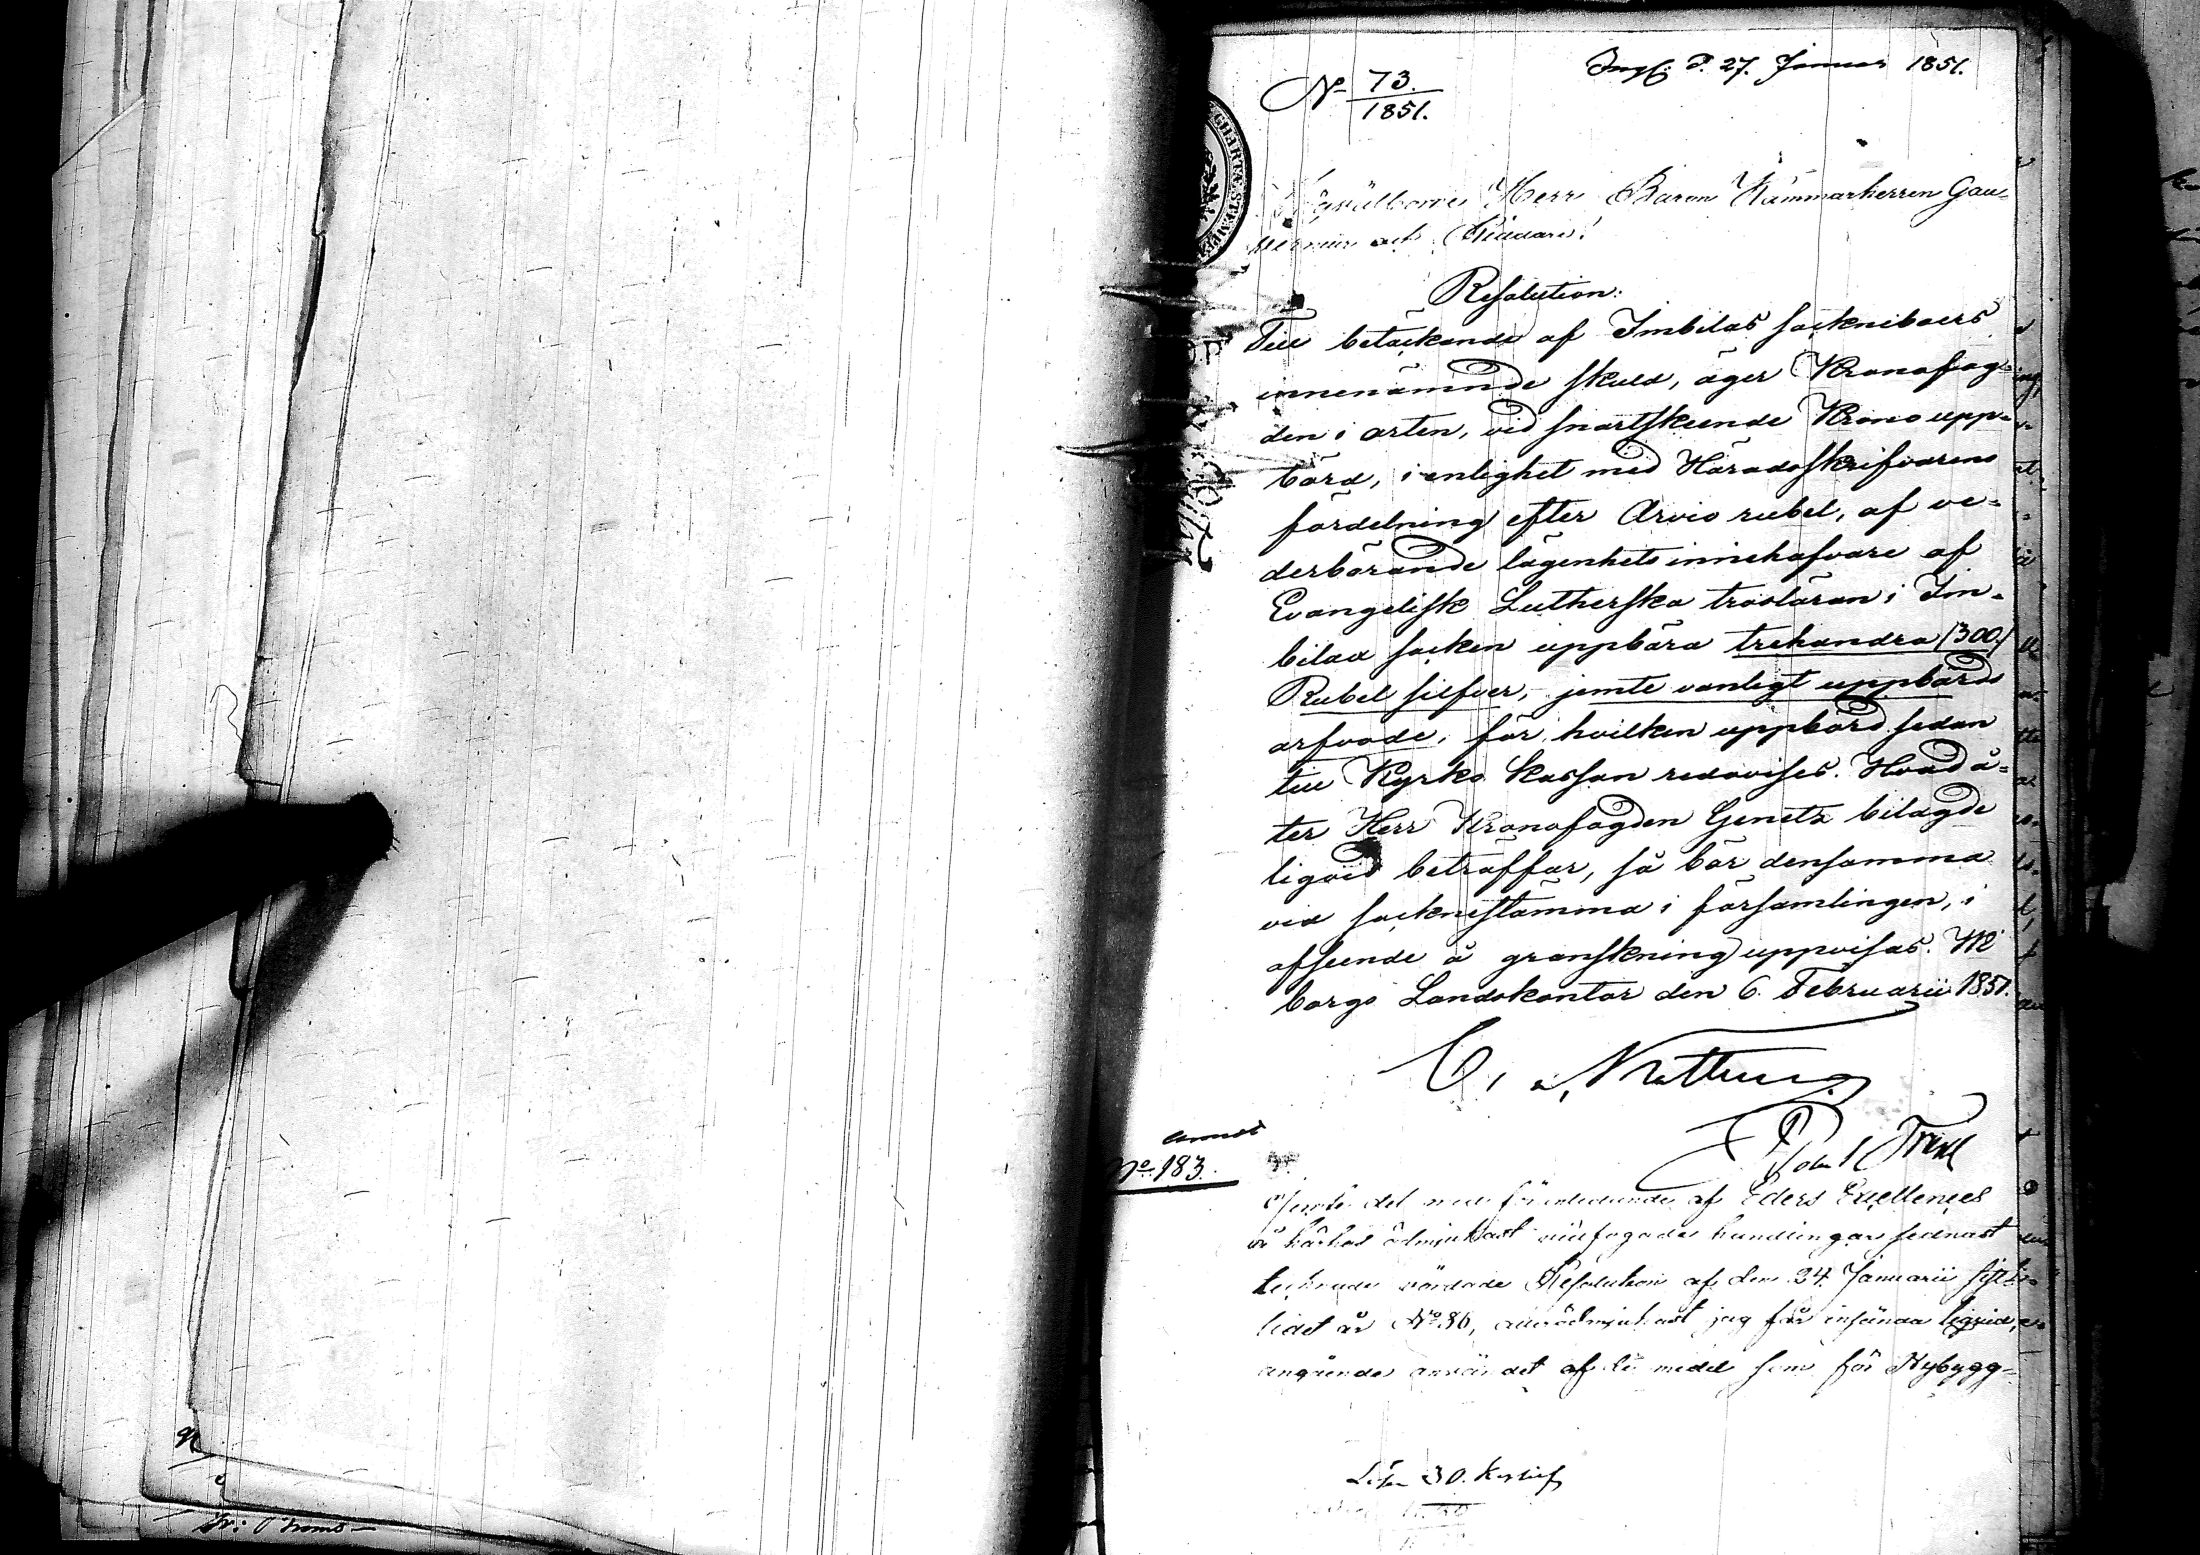 Ingk: d. 27. Januar 1851.
No 73.
1851.
Högvälborne Herr Baron Kammarherren Gou-
verneur och Riddare!
Resolution:
Till betäckande af Imbilas sockneboers
innenämnde skuld, äger Kronofog-
den i orten, vid snartskeende Krono upp-
börd, i enlighet med Häradsskrifvarens
fördelning efter Arvio rubel, af ve-
derbörande lägenhets innehafvare af
Evangelisk Lutherska trosläran i Im-
bilax socken uppbära trehundra /300/
Rubel silfver, jemte vanligt uppbörds
arfvode, för hvilken uppbörd sedan
till Kyrko kassan redovises. Hvad å-
ter Herr Kronofogden Genetz bilagde
liqvid beträffar, så bör densamma
vid socknestämma i församlingen, i
afseende å granskning uppvisas. Wi
borgs Landskontor den 6. Februarii 1851.
C,
Robert Trxxx
No. 183.
Jemte det med återsändande af Eders Excellences
å härhos ödmjukast vidfogade handlingar senast
tecknade vördade Resolution af den 24 Januarii sistl-
lidet år No 86, allraödmjukast jag får insända liqvid,
angående användet af de medel som för Nybygg-
Lösen 30. kop silf